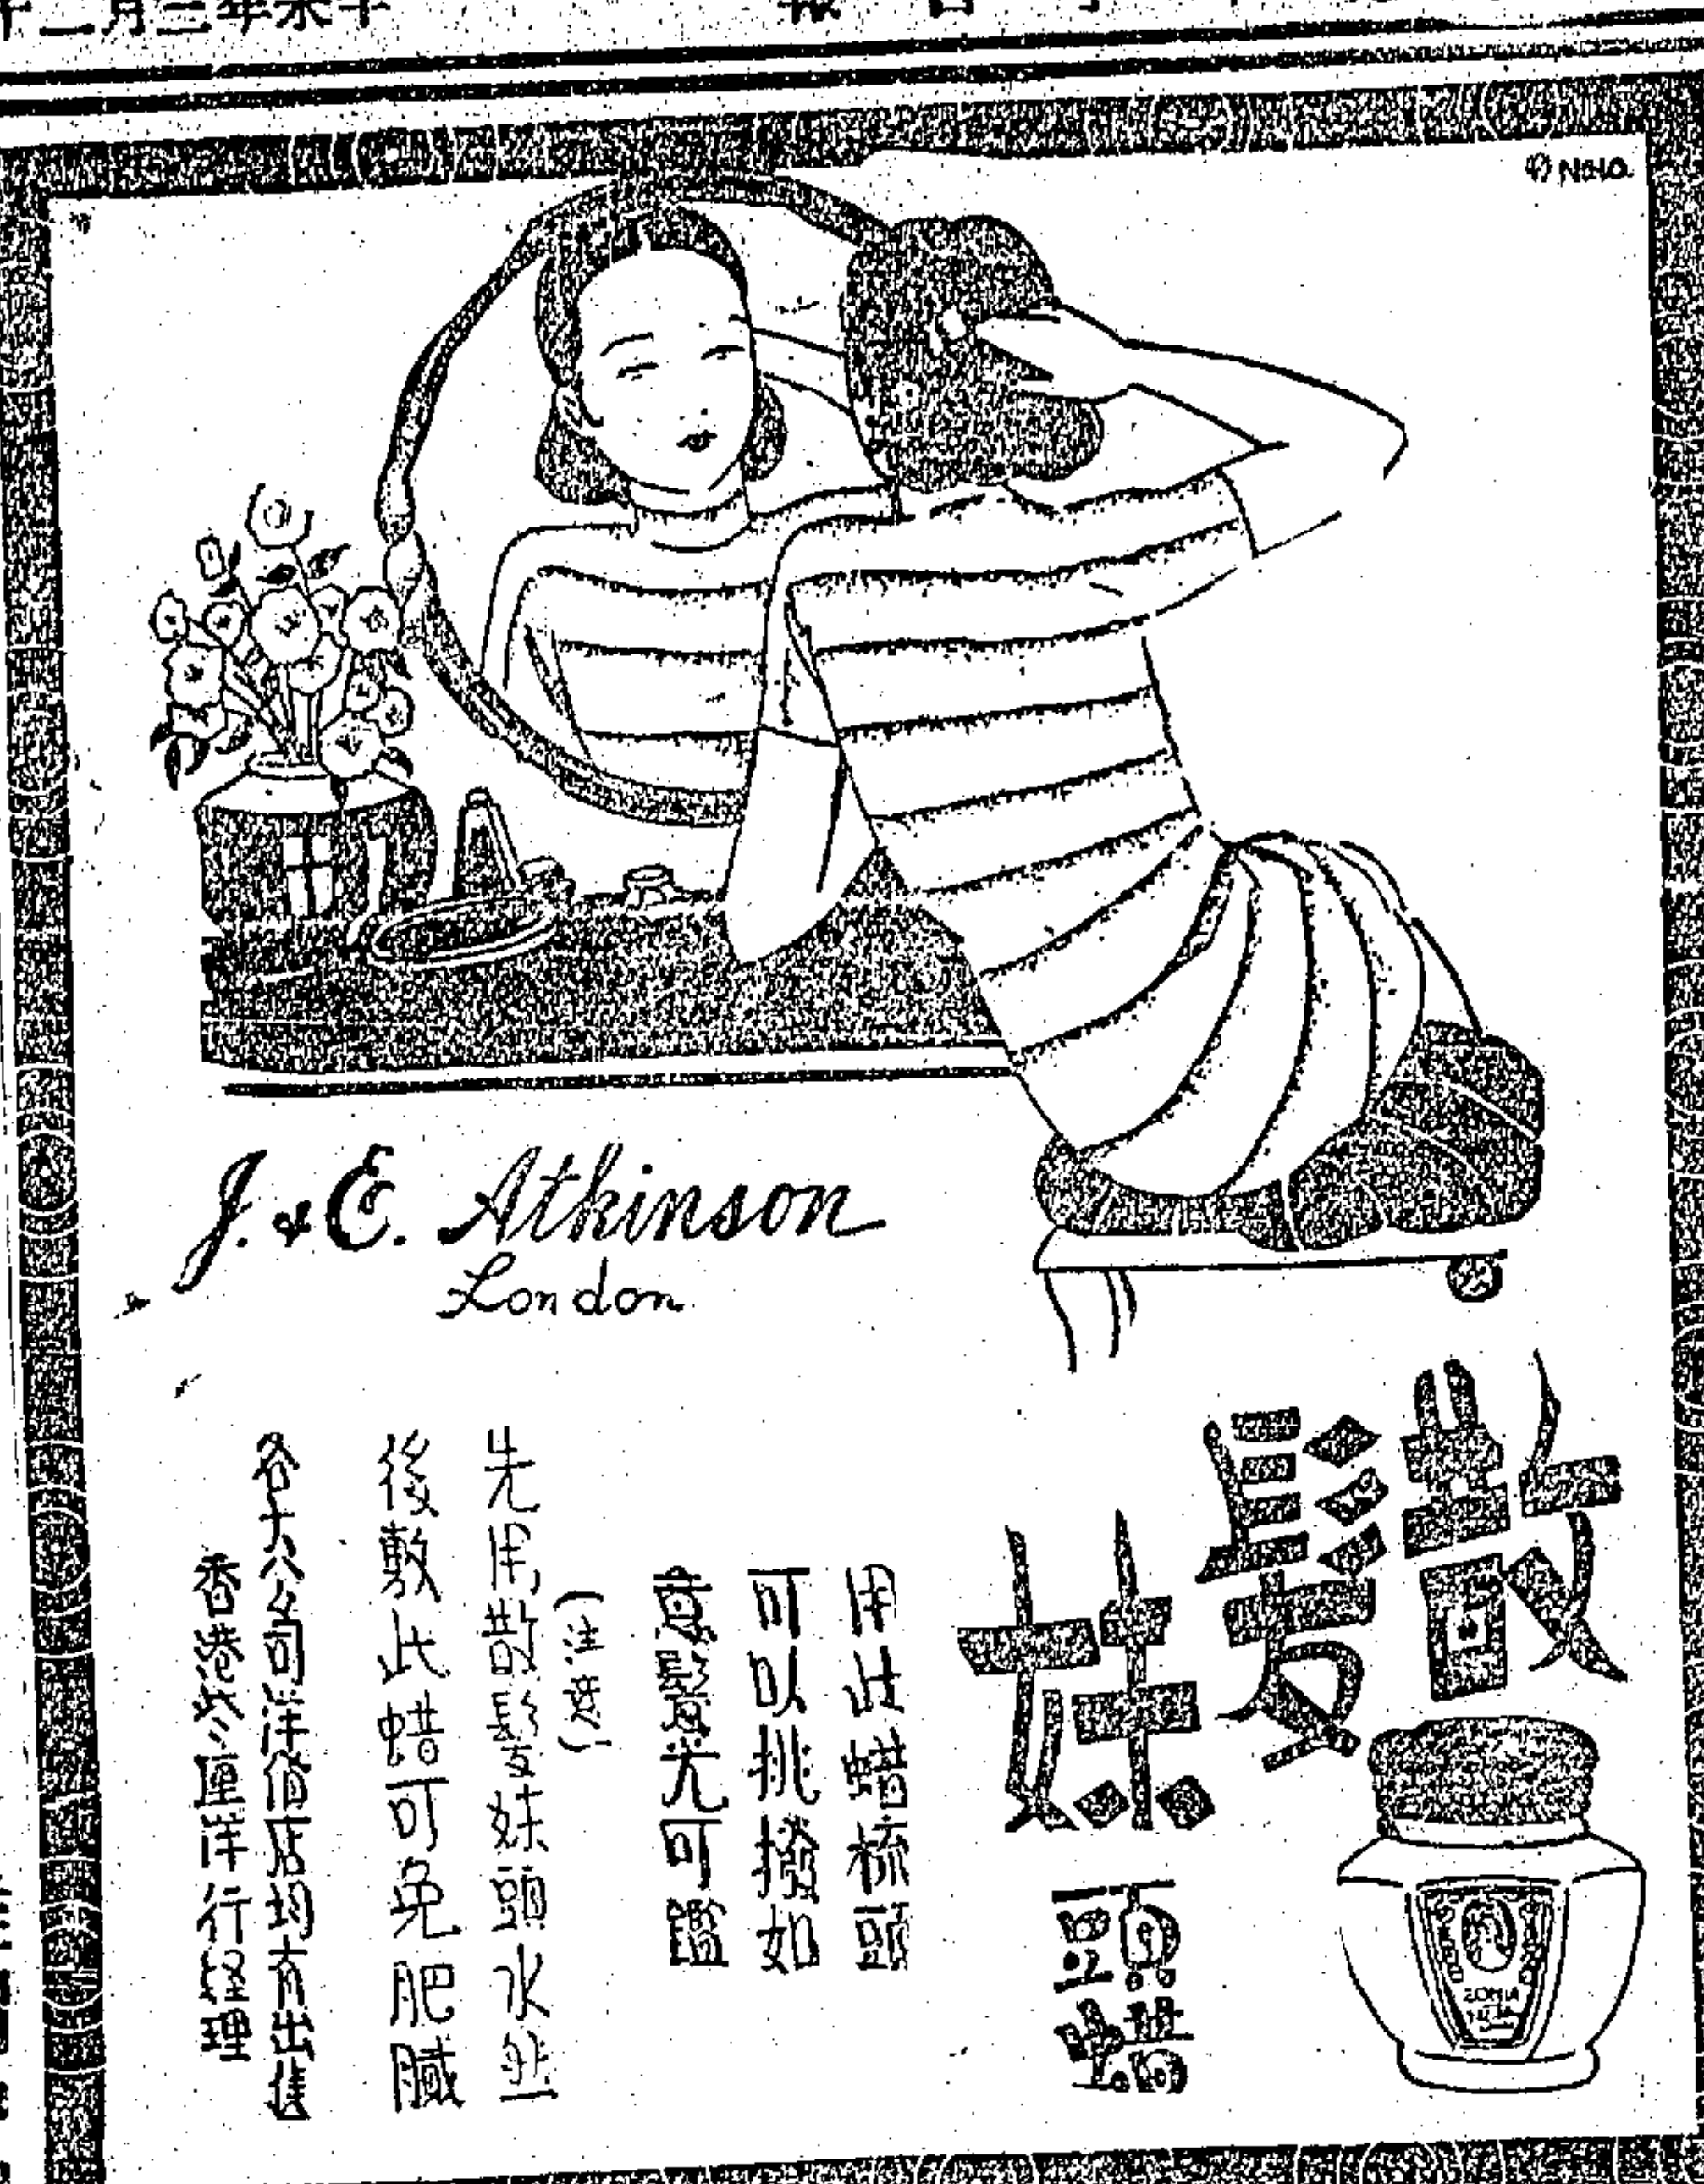 年三月二十
J. & E. Atkinson
London
散髮妹
頭蜡
用此蜡梳頭
可以挑撥如
意鬆光可鑑
先用散髮妹頭水然
後敷此蜡可免肥膩
各大公司洋貨店均有出售
香港 洋行經理